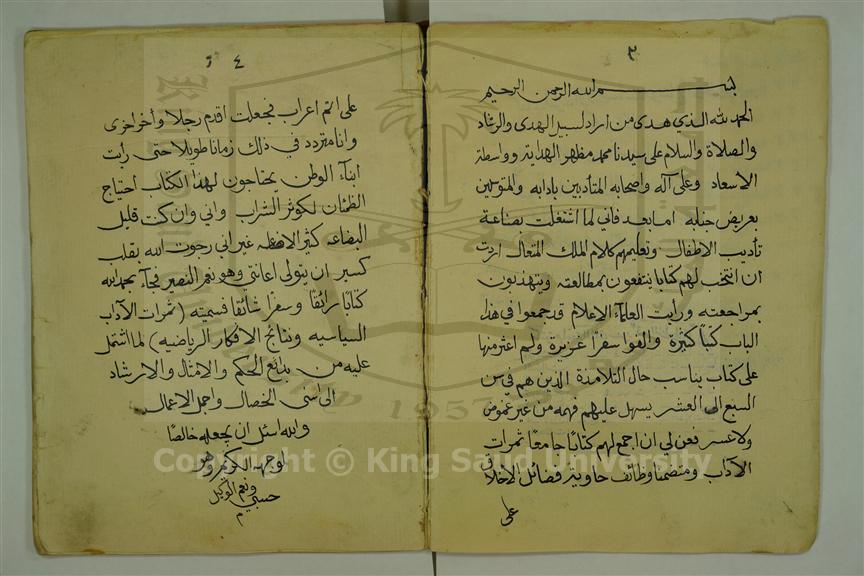 ٣
بسم الله الرحمن الرحيم
الحمد لله الذي هدى من اراد لسبيل الهدى والرشاد
والصلاة والسلام على سيدنا محمد مظهر الهداية وواسطة
الاسعاد وعلى آله واصحابه المتأدبين بادابه والمتوسلين
بعريض جنابه اما بعد فاني لما اشتغلت بصناعة
تأديب الاطفال وتعليمهم كلام الملك المتعال اردت
ان انتخب لهم كتابا ينتفعون بمطالعته ويتهذبون
بمراجعته ورأيت العلمآء الاعلام قد جمعوا في هذا
الباب كتباً كثيرة والفوا سفرا غزيرة ولم اعثر منها
على كتاب يناسب حال التلامذة الذين هم في سن
السبع الى العشر يسهل عليهم فهمه من غير غموض
ولا عسر فعن لي ان اجمع لهم كتابا جامعا ثمرات
الآداب ومتضمنا وظائف حاوية فضائل الاخلاق
على
٤
على اتم اعراب فجعلت اقدم رجلا وأخر اخرى
وانا متردد في ذلك زمانا طويلا حتى رأيت
ابنآء الوطن يحتاجون لهذا الكتاب احتياج
الظمئان لكوثر الشراب واني وان كنت قليل
البضاعه كثير الاضاعه غير اني رجوت الله بقلب
كسير ان يتولى اعانتي وهو نعم النصير فجآء بحمد الله
كتابا رائقا وسفرا شائقا فسميته (ثمرات الآداب
السياسيه ونتائج الافكار الرياضيه) لما اشتمل
عليه من بدائع الحكم والامثال والارشاد
الى اسنى الخصال واجمل الاعمال
والله اسئل ان يجعله خالصا
لوجهه الكريم وهو
حسبي ونعم الوكيل
م
Copyright © King Saud University
1957